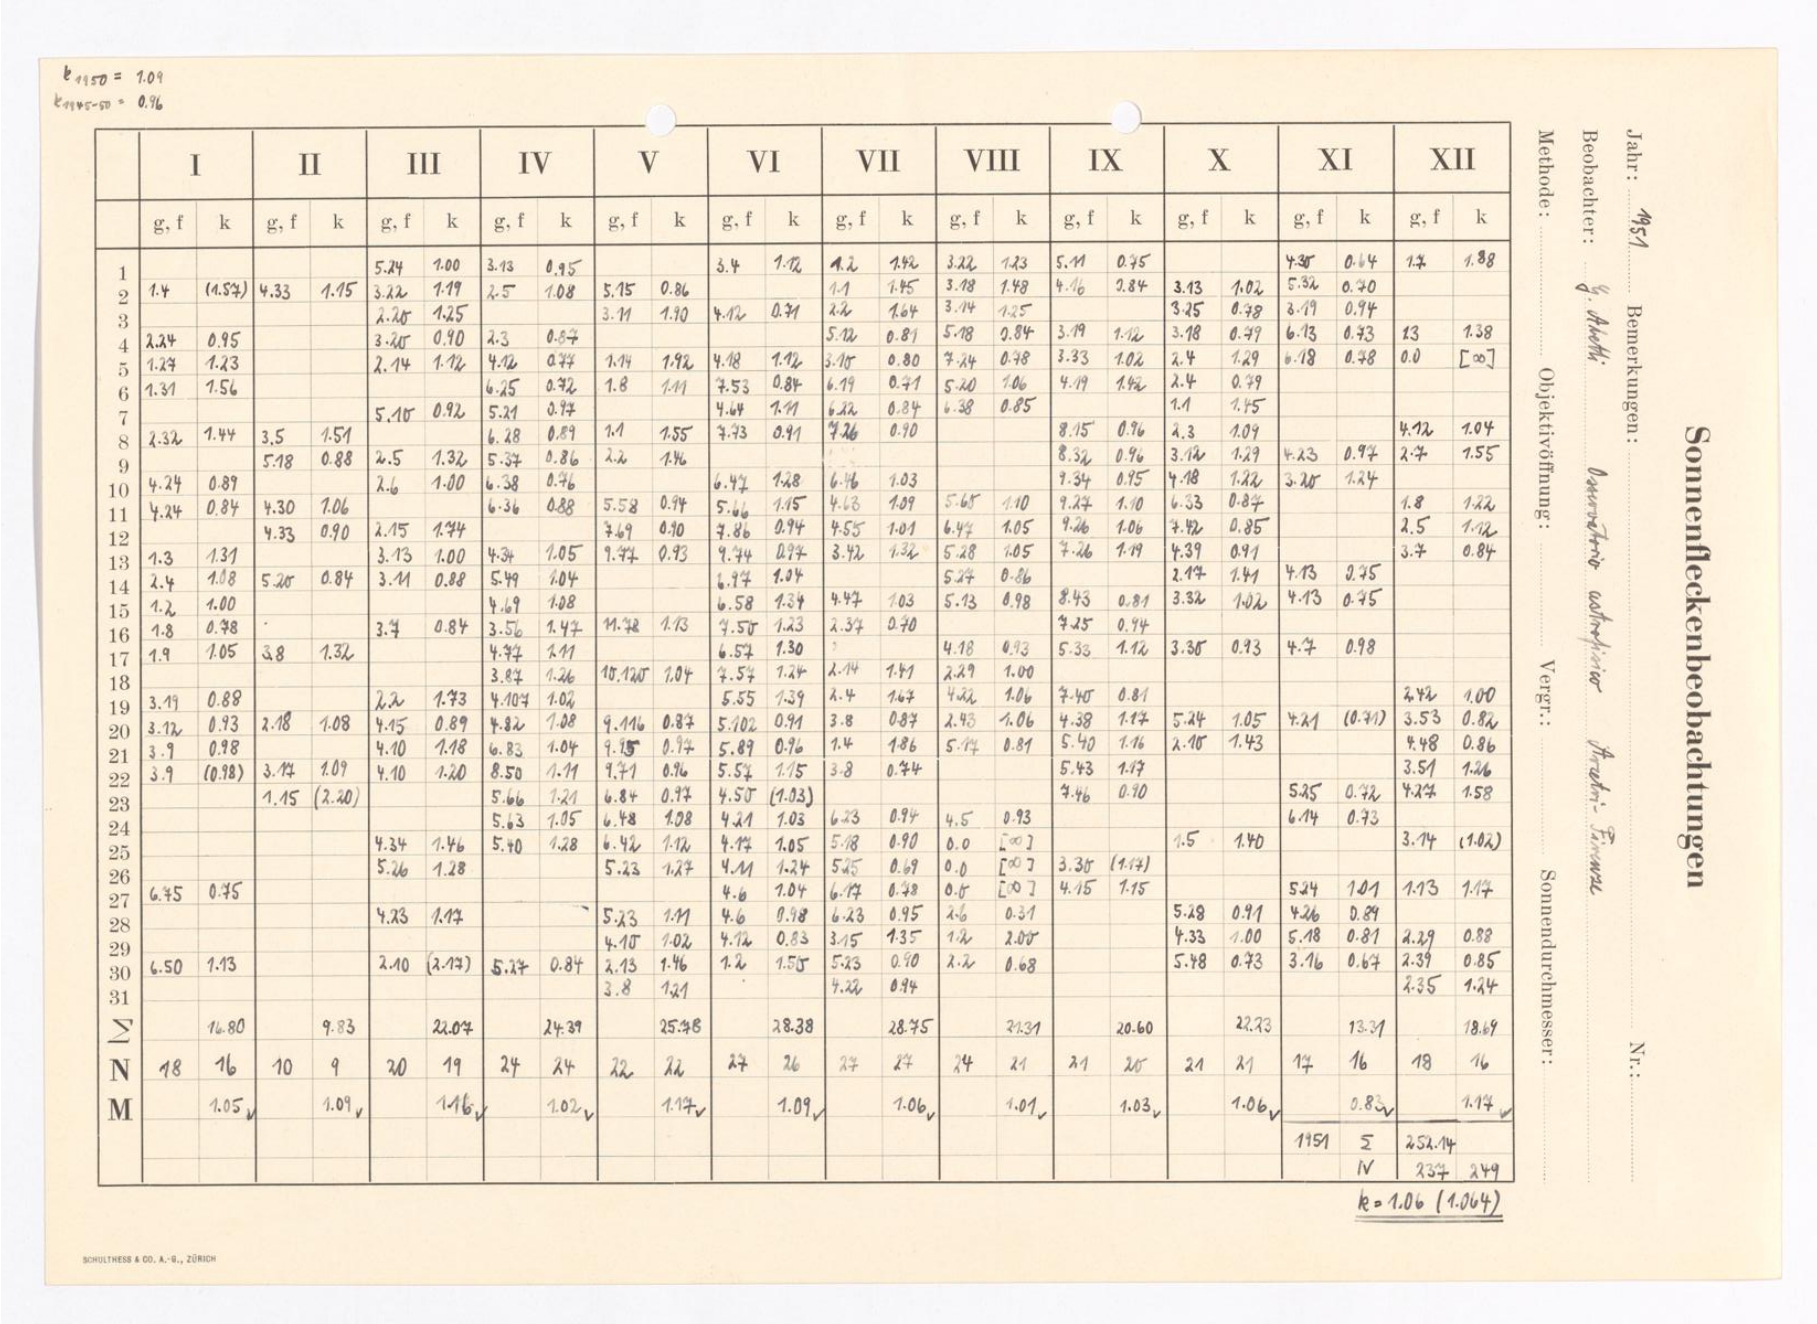 k 1950 = 1.09
k 1945-50 = 0.96
I II III IV V VI VII VIII IX X XI XII
g, f k g, f k g, f k g, f k g, f k g, f k g, f k g, f k g, f k g, f k g, f k g, f k
1 5.24 1.00 3.13 0.95 3.4 1.12 1.2 1.42 3.22 1.23 5.11 0.75 4.30 0.64 1.7 1.38
2 1.4 (1.57) 4.33 1.15 3.22 1.19 2.5 1.08 5.15 0.86 1.1 1.45 3.18 1.48 4.16 0.84 3.13 1.02 5.32 0.70
3 2.20 1.25 3.11 1.90 4.12 0.71 2.2 1.64 3.14 1.25 3.25 0.78 3.19 0.94
4 2.24 0.95 3.20 0.90 2.3 0.87 5.12 0.81 5.18 0.84 3.19 1.12 3.18 0.79 6.13 0.73 1.3 1.38
5 1.27 1.23 2.14 1.12 4.12 0.77 1.14 1.92 4.18 1.12 3.10 0.80 7.24 0.78 3.33 1.02 2.4 1.29 6.18 0.78 0.0 [∞]
6 1.31 1.56 6.25 0.72 1.8 1.11 7.53 0.84 6.19 0.71 5.20 1.06 4.19 1.42 2.4 0.79
7 5.10 0.92 5.21 0.97 4.64 1.11 6.22 0.84 6.38 0.85 1.1 1.45
8 2.32 1.44 3.5 1.51 6.28 0.89 1.1 1.55 7.73 0.91 7.26 0.90 8.15 0.96 2.3 1.09 4.12 1.04
9 5.18 0.88 2.5 1.32 5.37 0.86 2.2 1.46 8.32 0.96 3.12 1.29 4.23 0.97 2.7 1.55
10 4.24 0.89 2.6 1.00 6.38 0.76 6.47 1.28 6.46 1.03 9.34 0.95 4.18 1.22 3.20 1.24
11 4.24 0.84 4.30 1.06 6.36 0.88 5.58 0.94 5.66 1.15 4.63 1.09 5.60 1.10 9.27 1.10 6.33 0.87 1.8 1.22
12 4.33 0.90 2.15 1.74 7.69 0.90 7.86 0.94 4.55 1.01 6.47 1.05 9.26 1.06 7.42 0.85 2.5 1.12
13 1.3 1.31 3.13 1.00 4.34 1.05 9.77 0.93 9.74 0.97 3.42 1.32 5.28 1.05 7.26 1.19 4.39 0.91 3.7 0.84
14 2.4 1.08 5.20 0.84 3.11 0.88 5.49 1.04 6.97 1.04 5.27 0.86 2.17 1.41 4.13 0.75
15 1.2 1.00 4.69 1.08 6.58 1.34 4.47 1.03 5.13 0.98 8.43 0.81 3.32 1.02 4.13 0.75
16 1.8 0.78 3.7 0.84 3.56 1.47 11.78 1.13 7.50 1.23 2.37 0.70 7.25 0.94
17 1.9 1.05 3.8 1.32 4.77 1.11 6.57 1.30 4.18 0.93 5.33 1.12 3.30 0.93 4.7 0.98
18 3.87 1.26 10.120 1.04 7.57 1.24 2.14 1.41 2.29 1.00
19 3.19 0.88 2.2 1.73 4.107 1.02 5.55 1.39 2.4 1.67 4.22 1.06 7.40 0.81 2.42 1.00
20 3.12 0.93 2.18 1.08 4.15 0.89 4.82 1.08 9.116 0.87 5.102 0.91 3.8 0.87 2.43 1.06 4.38 1.17 5.24 1.05 4.21 (0.71) 3.53 0.82
21 3.9 0.98 4.10 1.18 6.83 1.04 9.15 0.97 5.89 0.96 1.4 1.86 5.17 0.81 5.40 1.16 2.10 1.43 4.48 0.86
22 3.9 (0.98) 3.17 1.09 4.10 1.20 8.50 1.11 9.71 0.96 5.57 1.15 3.8 0.74 5.43 1.17 3.51 1.26
23 1.15 (2.20) 5.66 1.21 6.84 0.97 4.50 (1.03) 7.46 0.90 5.25 0.72 4.27 1.58
24 5.63 1.05 6.48 1.08 4.21 1.03 6.23 0.94 4.5 0.93 6.14 0.73
25 4.34 1.46 5.40 1.28 6.42 1.12 4.17 1.05 5.18 0.90 0.0 [∞] 1.5 1.40 3.14 (1.02)
26 5.26 1.28 5.23 1.27 4.11 1.24 5.25 0.69 0.0 [∞] 3.30 (1.17)
27 6.75 0.75 4.6 1.04 6.17 0.78 0.0 [∞] 4.15 1.15 5.24 1.01 1.13 1.17
28 4.23 1.17 5.23 1.11 4.6 0.98 6.23 0.95 2.6 0.31 5.28 0.91 4.26 0.89
29 4.10 1.02 4.12 0.83 3.15 1.35 1.2 2.00 4.33 1.00 5.18 0.81 2.29 0.88
30 6.50 1.13 2.10 (2.17) 5.27 0.84 2.13 1.46 1.2 1.50 5.23 0.90 2.2 0.68 5.48 0.73 3.16 0.67 2.39 0.85
31 3.8 1.21 4.22 0.94 2.35 1.24
Σ 16.80 9.83 22.07 24.39 25.78 28.38 28.75 21.31 20.60 22.23 13.31 18.69
N 18 16 10 9 20 19 24 24 22 22 27 26 27 27 24 21 21 20 21 21 17 16 18 16
M 1.05 1.09 1.16 1.02 1.17 1.09 1.06 1.01 1.03 1.06 0.83 1.17
1951 Σ 252.14
N 237 249
k = 1.06 (1.064)
SCHULTHESS & CO. A.-G., ZÜRICH
Sonnenfleckenbeobachtungen
Jahr: 1951 Bemerkungen: Nr.:
Beobachter: G. Abetti Osservatorio astrofisico Arcetri-Firenze
Methode: Objektivöffnung: Vergr.: Sonnendurchmesser: